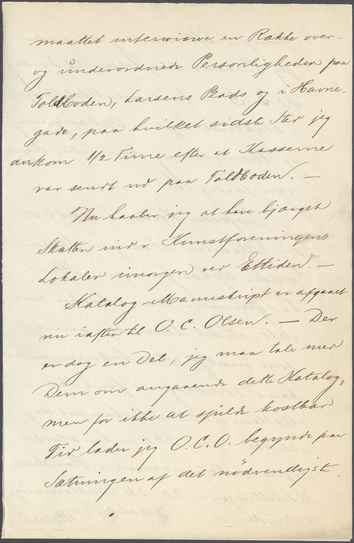 maattet interviewe en Række over-
og underordnede Personligheder paa
Toldboden, Larsens Plads og i Havne-
gade, paa hvilket sidste Sted jeg
ankom 1/2 Time efter at Kasserne
var sendt ud paa Toldboden. —
Nu haaber jeg at have bjærget
Skatten ind i Kunstforeningens
Lokaler imorgen ved Ettiden. —
Katalog-Manuskript er afgaaet
nu iaften til O. C. Olsen. — Der
er dog en Del, jeg maa tale med
Dem om angaaende dette Katalog,
men for ikke at spilde kostbar
Tid lader jeg O.C.O. begynde paa
Sætningen af det nødvendigst.